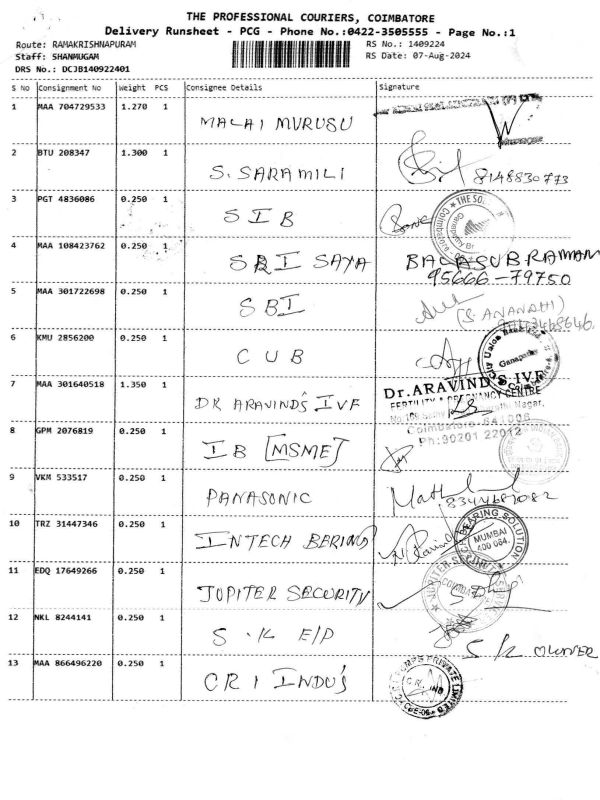 THE PROFESSIONAL COURIERS, COIMBATORE
Delivery Runsheet - PCG - Phone No.:0422-3505555 - Page No.:1
Route: RAMAKRISHNAPURAM RS No.: 1409224
Staff: SHANMUGAM RS Date: 07-Aug-2024
DRS No.: DCJB140922401
S No Consignment No Weight PCS Consignee Details Signature
1 MAA 704729533 1.270 1 MALAI MURUSU
2 BTU 208347 1.300 1 S. SARAMILI 8148830773
3 PGT 4836086 0.250 1 SIB THE SO
4 MAA 108423762 0.250 1 SBI SAYA BALASUBRAMANI
95666-79750
5 MAA 301722698 0.250 1 SBI (S. ANANDHI)
6 KMU 2856200 0.250 1 CUB City Union Bank Ganapathy
7 MAA 301640518 1.350 1 DR ARAVIND'S IVF Dr.ARAVIND'S IVF
FERTILITY & PREGNANCY CENTRE
Nagar,
Coimbatore 641 006
Ph:90201 22012
8 GPM 2076819 0.250 1 IB [MSME]
9 VKM 533517 0.250 1 PANASONIC 8344687082
10 TRZ 31447346 0.250 1 INTECH BERING BEARING SOLUTION MUMBAI 400 064.
11 EDQ 17649266 0.250 1 JUPITER SECURITY
12 NKL 8244141 0.250 1 S.K E/P S K
13 MAA 866496220 0.250 1 CRI INDU'S PRIVATE LIMITED